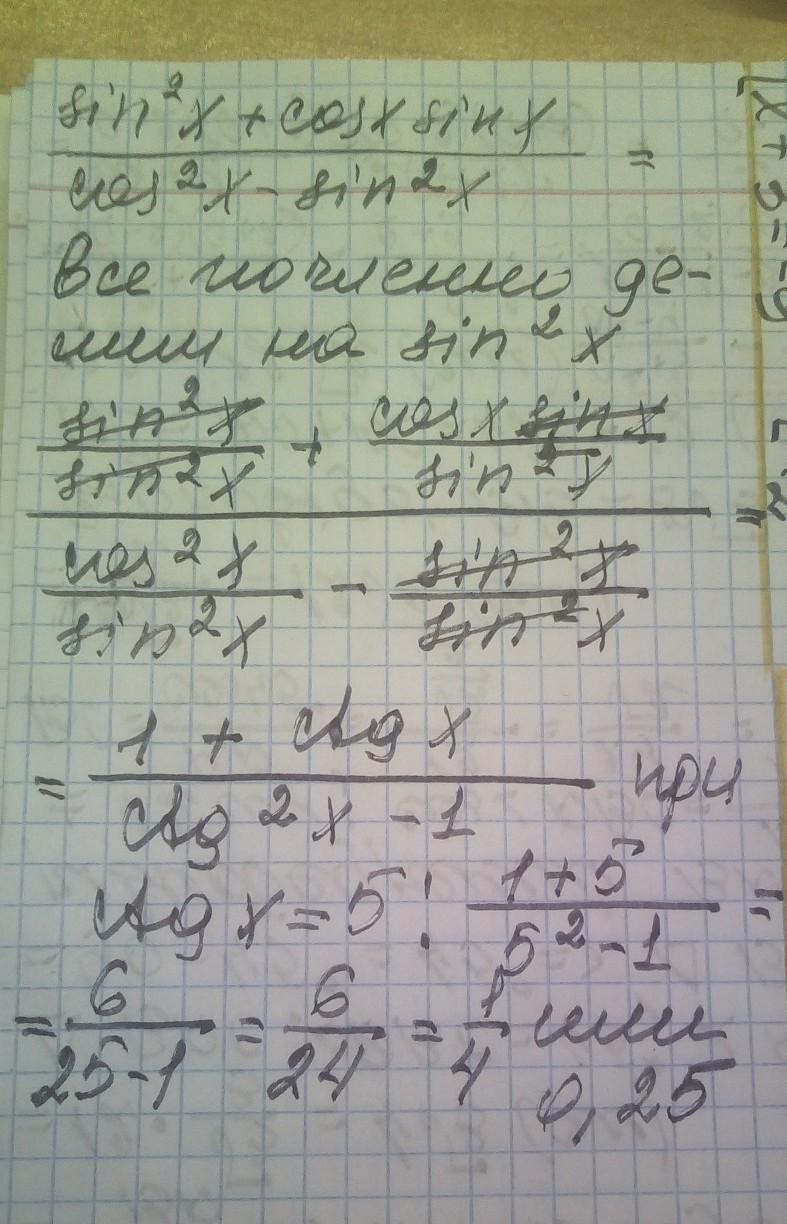 sin²x + cosx sinx
cos²x - sin²x =
Все почленно де-
лим на sin²x
sin²x/sin²x + cosx sinx/sin²x
cos²x/sin²x - sin²x/sin²x =
= 1 + ctg x
ctg²x - 1 при
ctg x = 5: 1+5 =
5² - 1
= 6/25-1 = 6/24 = 1/4 или
0,25